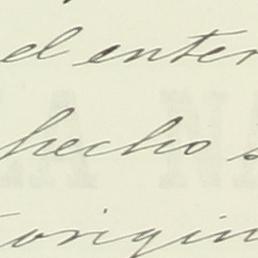 el enter
hecho s
origin